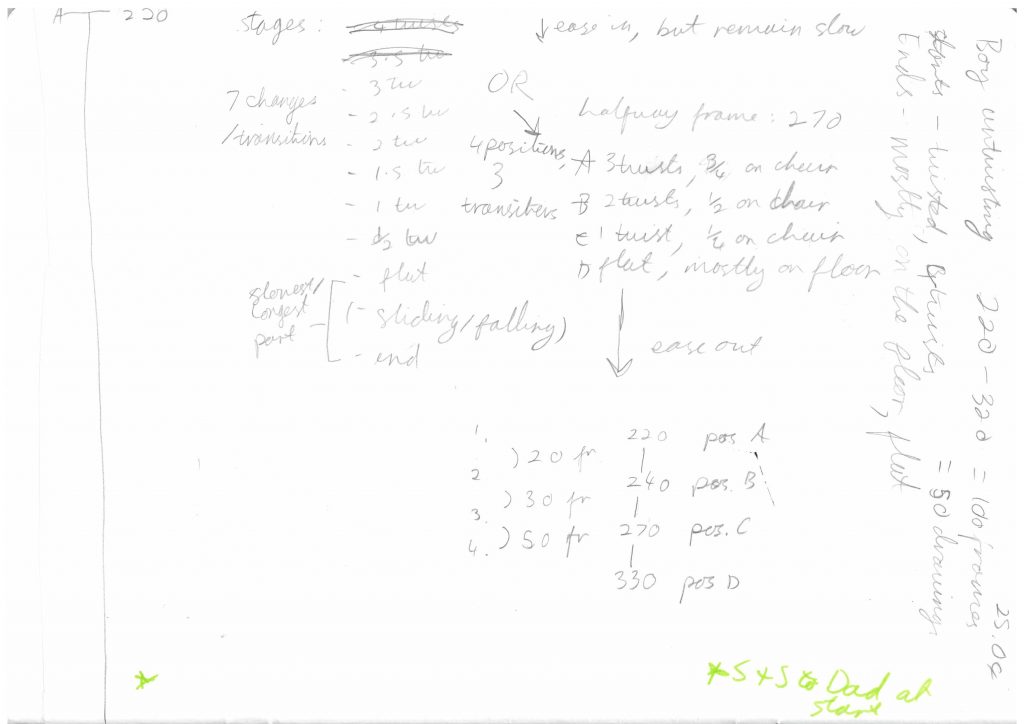 A 220
stages : 4 twists
3.5 tw
- 3 tw
- 2.5 tw
- 2 tw
- 1.5 tw
- 1 tw
- 1/2 tw
- flat
(- sliding/falling)
- end
7 changes
/transitions
slowest/
longest
part
↓ ease in, but remain slow
OR
halfway frame : 270
4 positions,
3
transitions
A 3 twists, 3/4 on chair
B 2 twists, 1/2 on chair
C 1 twist, 1/4 on chair
D flat, mostly on floor
ease out
1. 220 pos A
) 20 fr
2 240 pos. B
) 30 fr
3. 270 pos. C
) 50 fr
4. 330 pos D
Boy untwisting 220 - 320 = 100 frames
= 50 drawings
starts - twisted, twists
Ends - mostly on the floor, flat
* 5 x 5 to Dad at
start
*